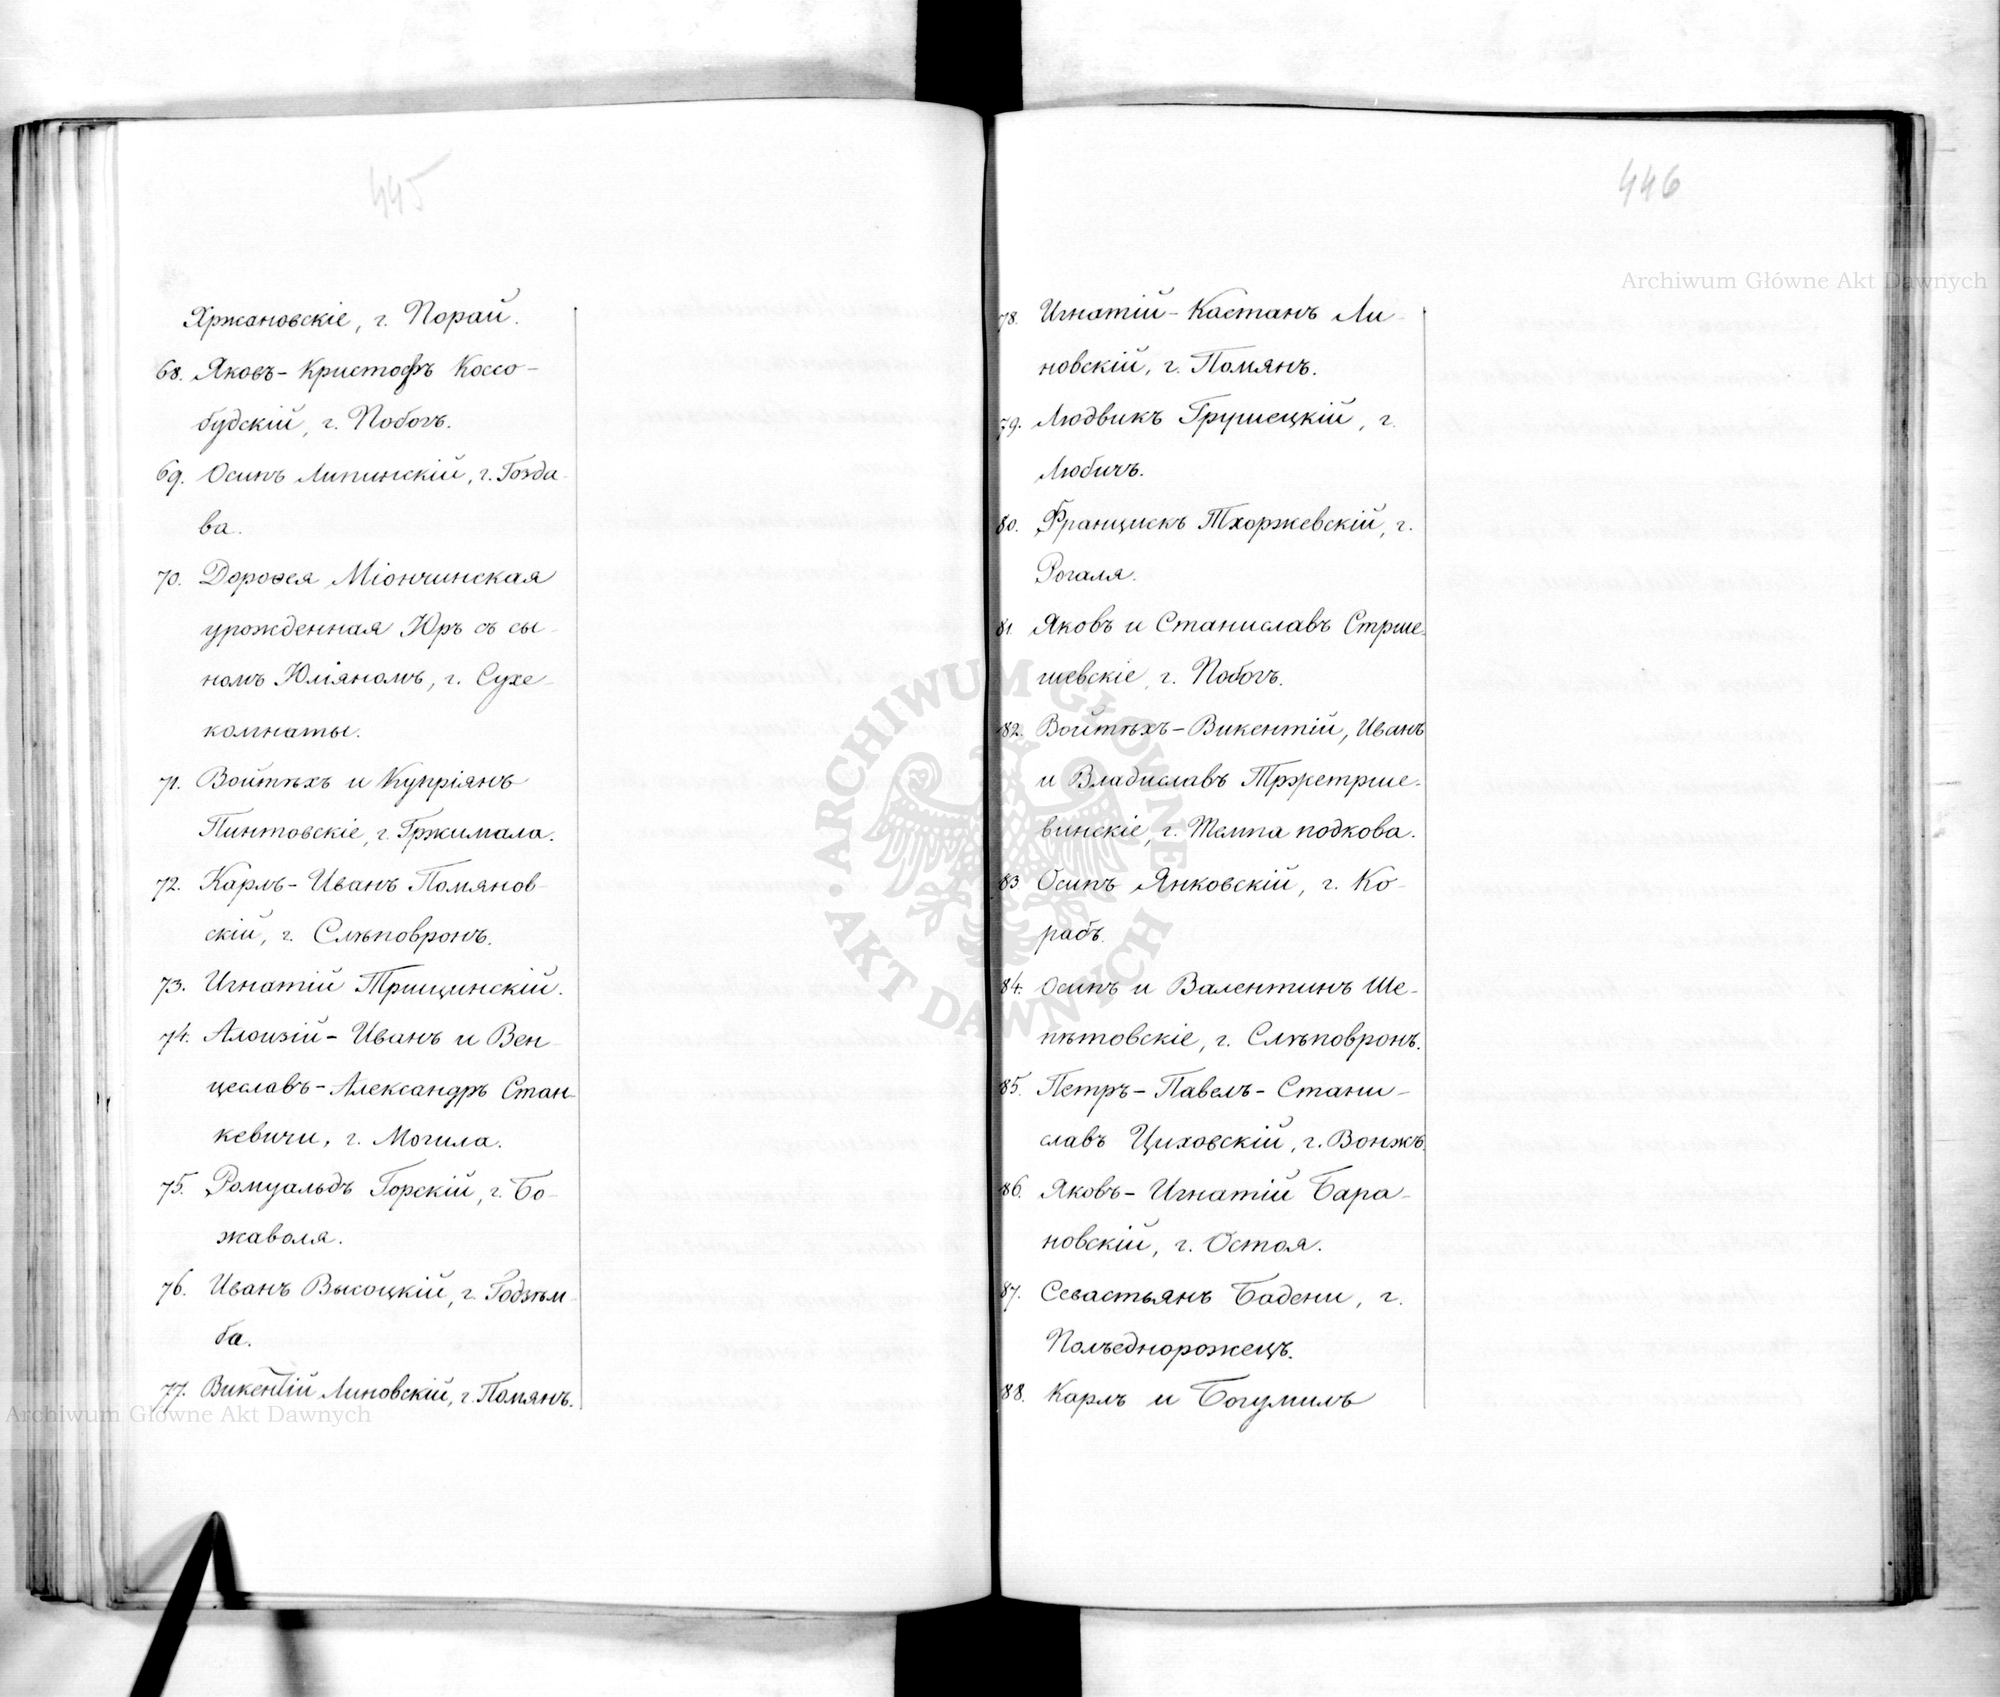 445
Хржановскіе, г. Порай.
68. Яковъ-Кристофъ Коссо-
будскій, г. Побогъ.
69. Осипъ Липинскій, г. Гозда-
ва.
70. Дороѳея Міончинская
урожденная Юръ съ сы-
номъ Юліяномъ, г. Сухе-
комнаты.
71. Войтѣхъ и Купріянъ
Пинтовскіе, г. Гржимала.
72. Карлъ-Иванъ Помянов-
скій, г. Слѣповронъ.
73. Игнатій Трищинскій.
74. Алоизій-Иванъ и Вен-
цеславъ-Александръ Стан-
кевичи, г. Могила.
75. Ромуальдъ Горскій, г. Бо-
жаволя.
76. Иванъ Высоцкій, г. Годзѣм-
ба.
77. Викентій Линовскій, г. Помянъ.
446
Archiwum Główne Akt Dawnych
78. Игнатій-Каетанъ Ли-
новскій, г. Помянъ.
79. Людвикъ Грушецкій, г.
Любичъ.
80. Францискъ Тхоржевскій, г.
Рогаля.
81. Яковъ и Станиславъ Стрше-
шевскіе, г. Побогъ.
82. Войтѣхъ-Викентій, Иванъ
и Владиславъ Тржетрше-
винскіе, г. Темпа подкова.
83. Осипъ Янковскій, г. Ко-
рабъ.
84. Осипъ и Валентинъ Ше-
пѣтовскіе, г. Слѣповронъ.
85. Петръ-Павелъ-Стани-
славъ Циховскій, г. Вонжъ.
86. Яковъ-Игнатій Бара-
новскій, г. Остоя.
87. Севастьянъ Бадени, г.
Полъеднорожецъ.
88. Карлъ и Богумилъ
ARCHIWUM GŁÓWNE AKT DAWNYCH
Archiwum Główne Akt Dawnych